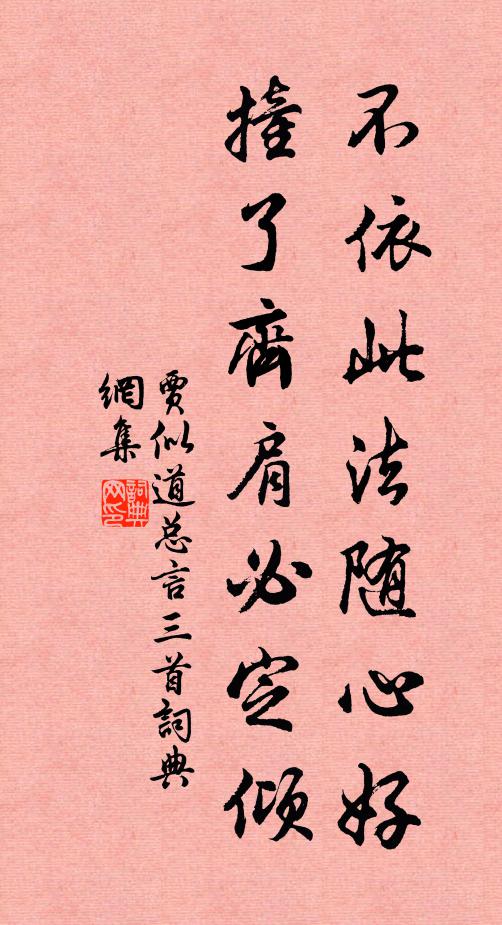 不依此法随心好
撞了齊肩必定倾
賈似道总言三首詞典
網集
詞典
网印